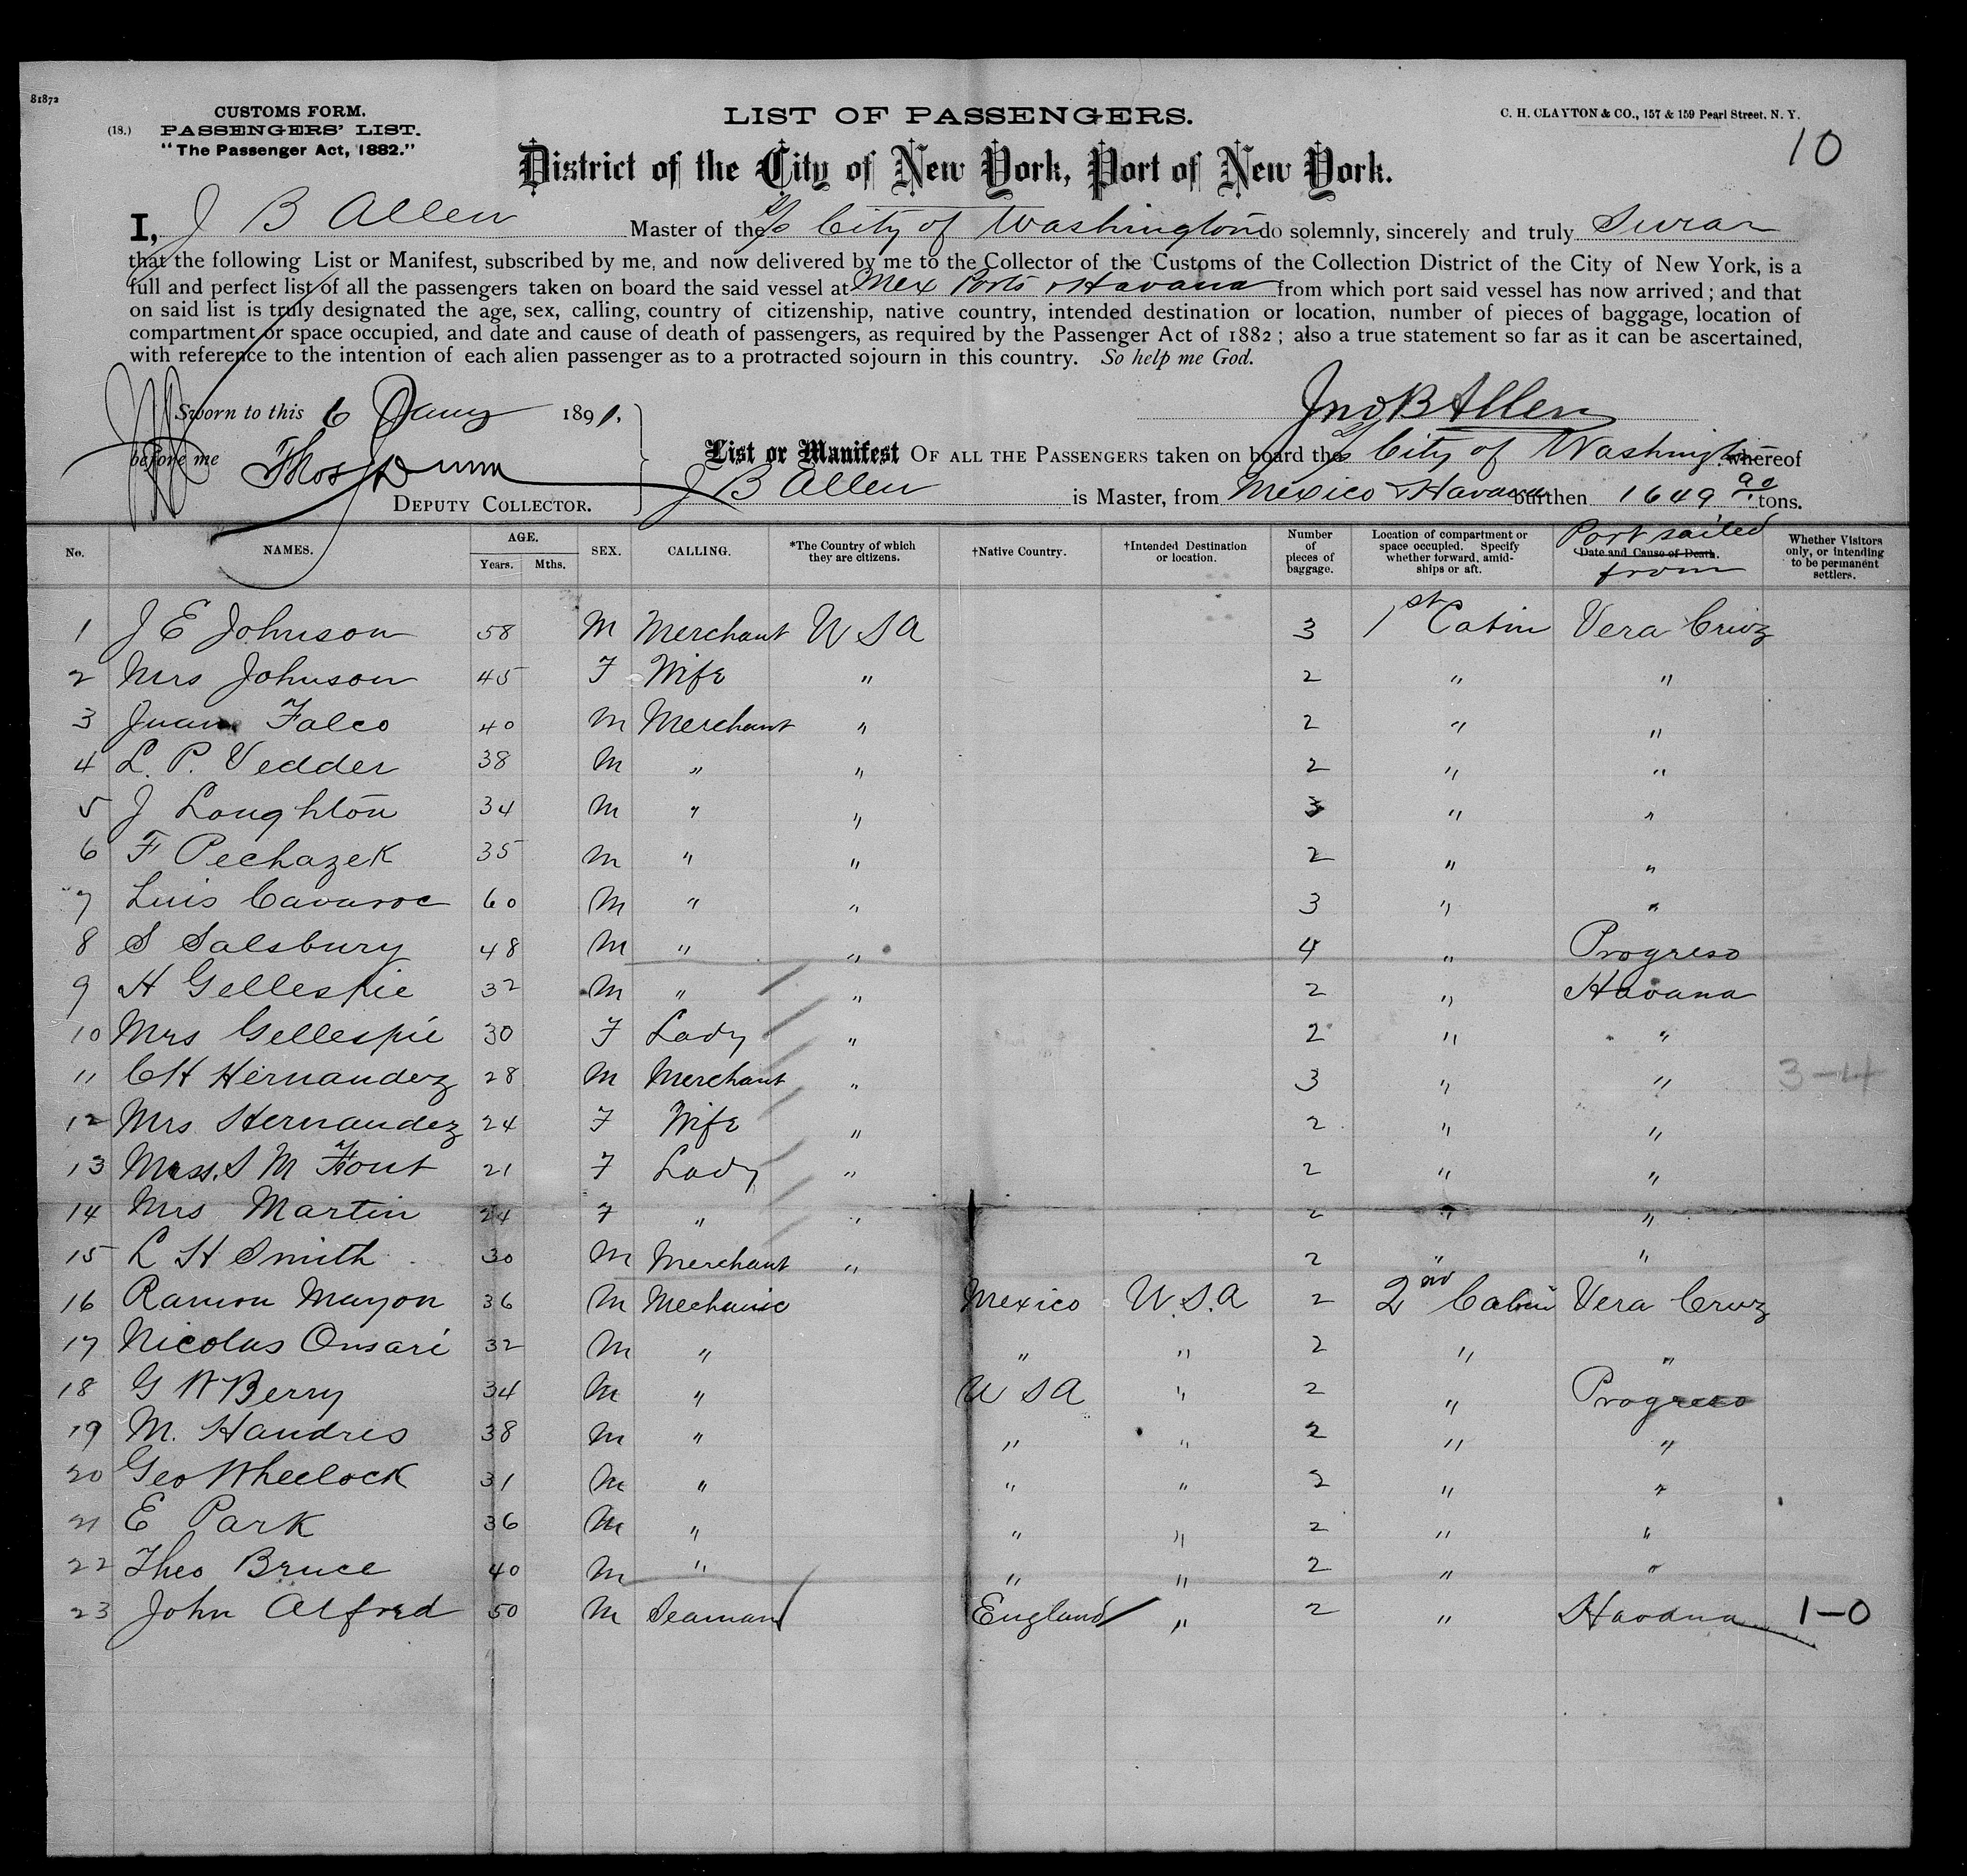 81872
CUSTOMS FORM.
(18.) PASSENGERS' LIST.
"The Passenger Act, 1882."
LIST OF PASSENGERS.
C. H. CLAYTON & CO., 157 & 159 Pearl Street, N. Y.
10
District of the City of New York, Port of New York.
I, J B Allen Master of the S/s City of Washington do solemnly, sincerely and truly Swear
that the following List or Manifest, subscribed by me, and now delivered by me to the Collector of the Customs of the Collection District of the City of New York, is a
full and perfect list of all the passengers taken on board the said vessel at Mex Ports & Havana from which port said vessel has now arrived; and that
on said list is truly designated the age, sex, calling, country of citizenship, native country, intended destination or location, number of pieces of baggage, location of
compartment or space occupied, and date and cause of death of passengers, as required by the Passenger Act of 1882; also a true statement so far as it can be ascertained,
with reference to the intention of each alien passenger as to a protracted sojourn in this country. So help me God.
Sworn to this 6 Jany 1891.
Jno B Allen
before me Thos Dunn
DEPUTY COLLECTOR.
List or Manifest OF ALL THE PASSENGERS taken on board the S/s City of Washington whereof
J B Allen is Master, from Mexico & Havana burthen 1649 90 tons.
No. NAMES. AGE. Years. Mths. SEX. CALLING. *The Country of which they are citizens. †Native Country. †Intended Destination or location. Number of pieces of baggage. Location of compartment or space occupied. Specify whether forward, amidships or aft. Date and Cause of Death. Port sailed from Whether Visitors only, or intending to be permanent settlers.
1 J E Johnson 58 M Merchant U S A 3 1st Cabin Vera Cruz
2 Mrs Johnson 45 F Wife " 2 " "
3 Juan Falco 40 M Merchant " 2 " "
4 L. P. Vedder 38 M " " 2 " "
5 J Loughton 34 M " " 3 " "
6 F Pechazek 35 M " " 2 " "
7 Luis Cavaroc 60 M " " 3 " "
8 S Salsbury 48 M " " 4 " Progreso
9 H Gellespie 32 M " " 2 " Havana
10 Mrs Gellespie 30 F Lady " 2 " "
11 C H Hernandez 28 M Merchant " 3 " " 3-4
12 Mrs Hernandez 24 F Wife " 2 " "
13 Miss. S M Font 21 F Lady " 2 " "
14 Mrs Martin 24 F " " 2 " "
15 L H Smith 30 M Merchant " 2 " "
16 Ramon Mayon 36 M Mechanic Mexico U.S.A 2 2nd Cabin Vera Cruz
17 Nicolas Onsari 32 M " " " 2 " "
18 G W Berry 34 M " U S A " 2 " Progreso
19 M. Handres 38 M " " " 2 " "
20 Geo Wheelock 31 M " " " 2 " "
21 E Park 36 M " " " 2 " "
22 Theo Bruce 40 M " " " 2 " "
23 John Alfred 50 M Seaman England " 2 " Havana 1-0